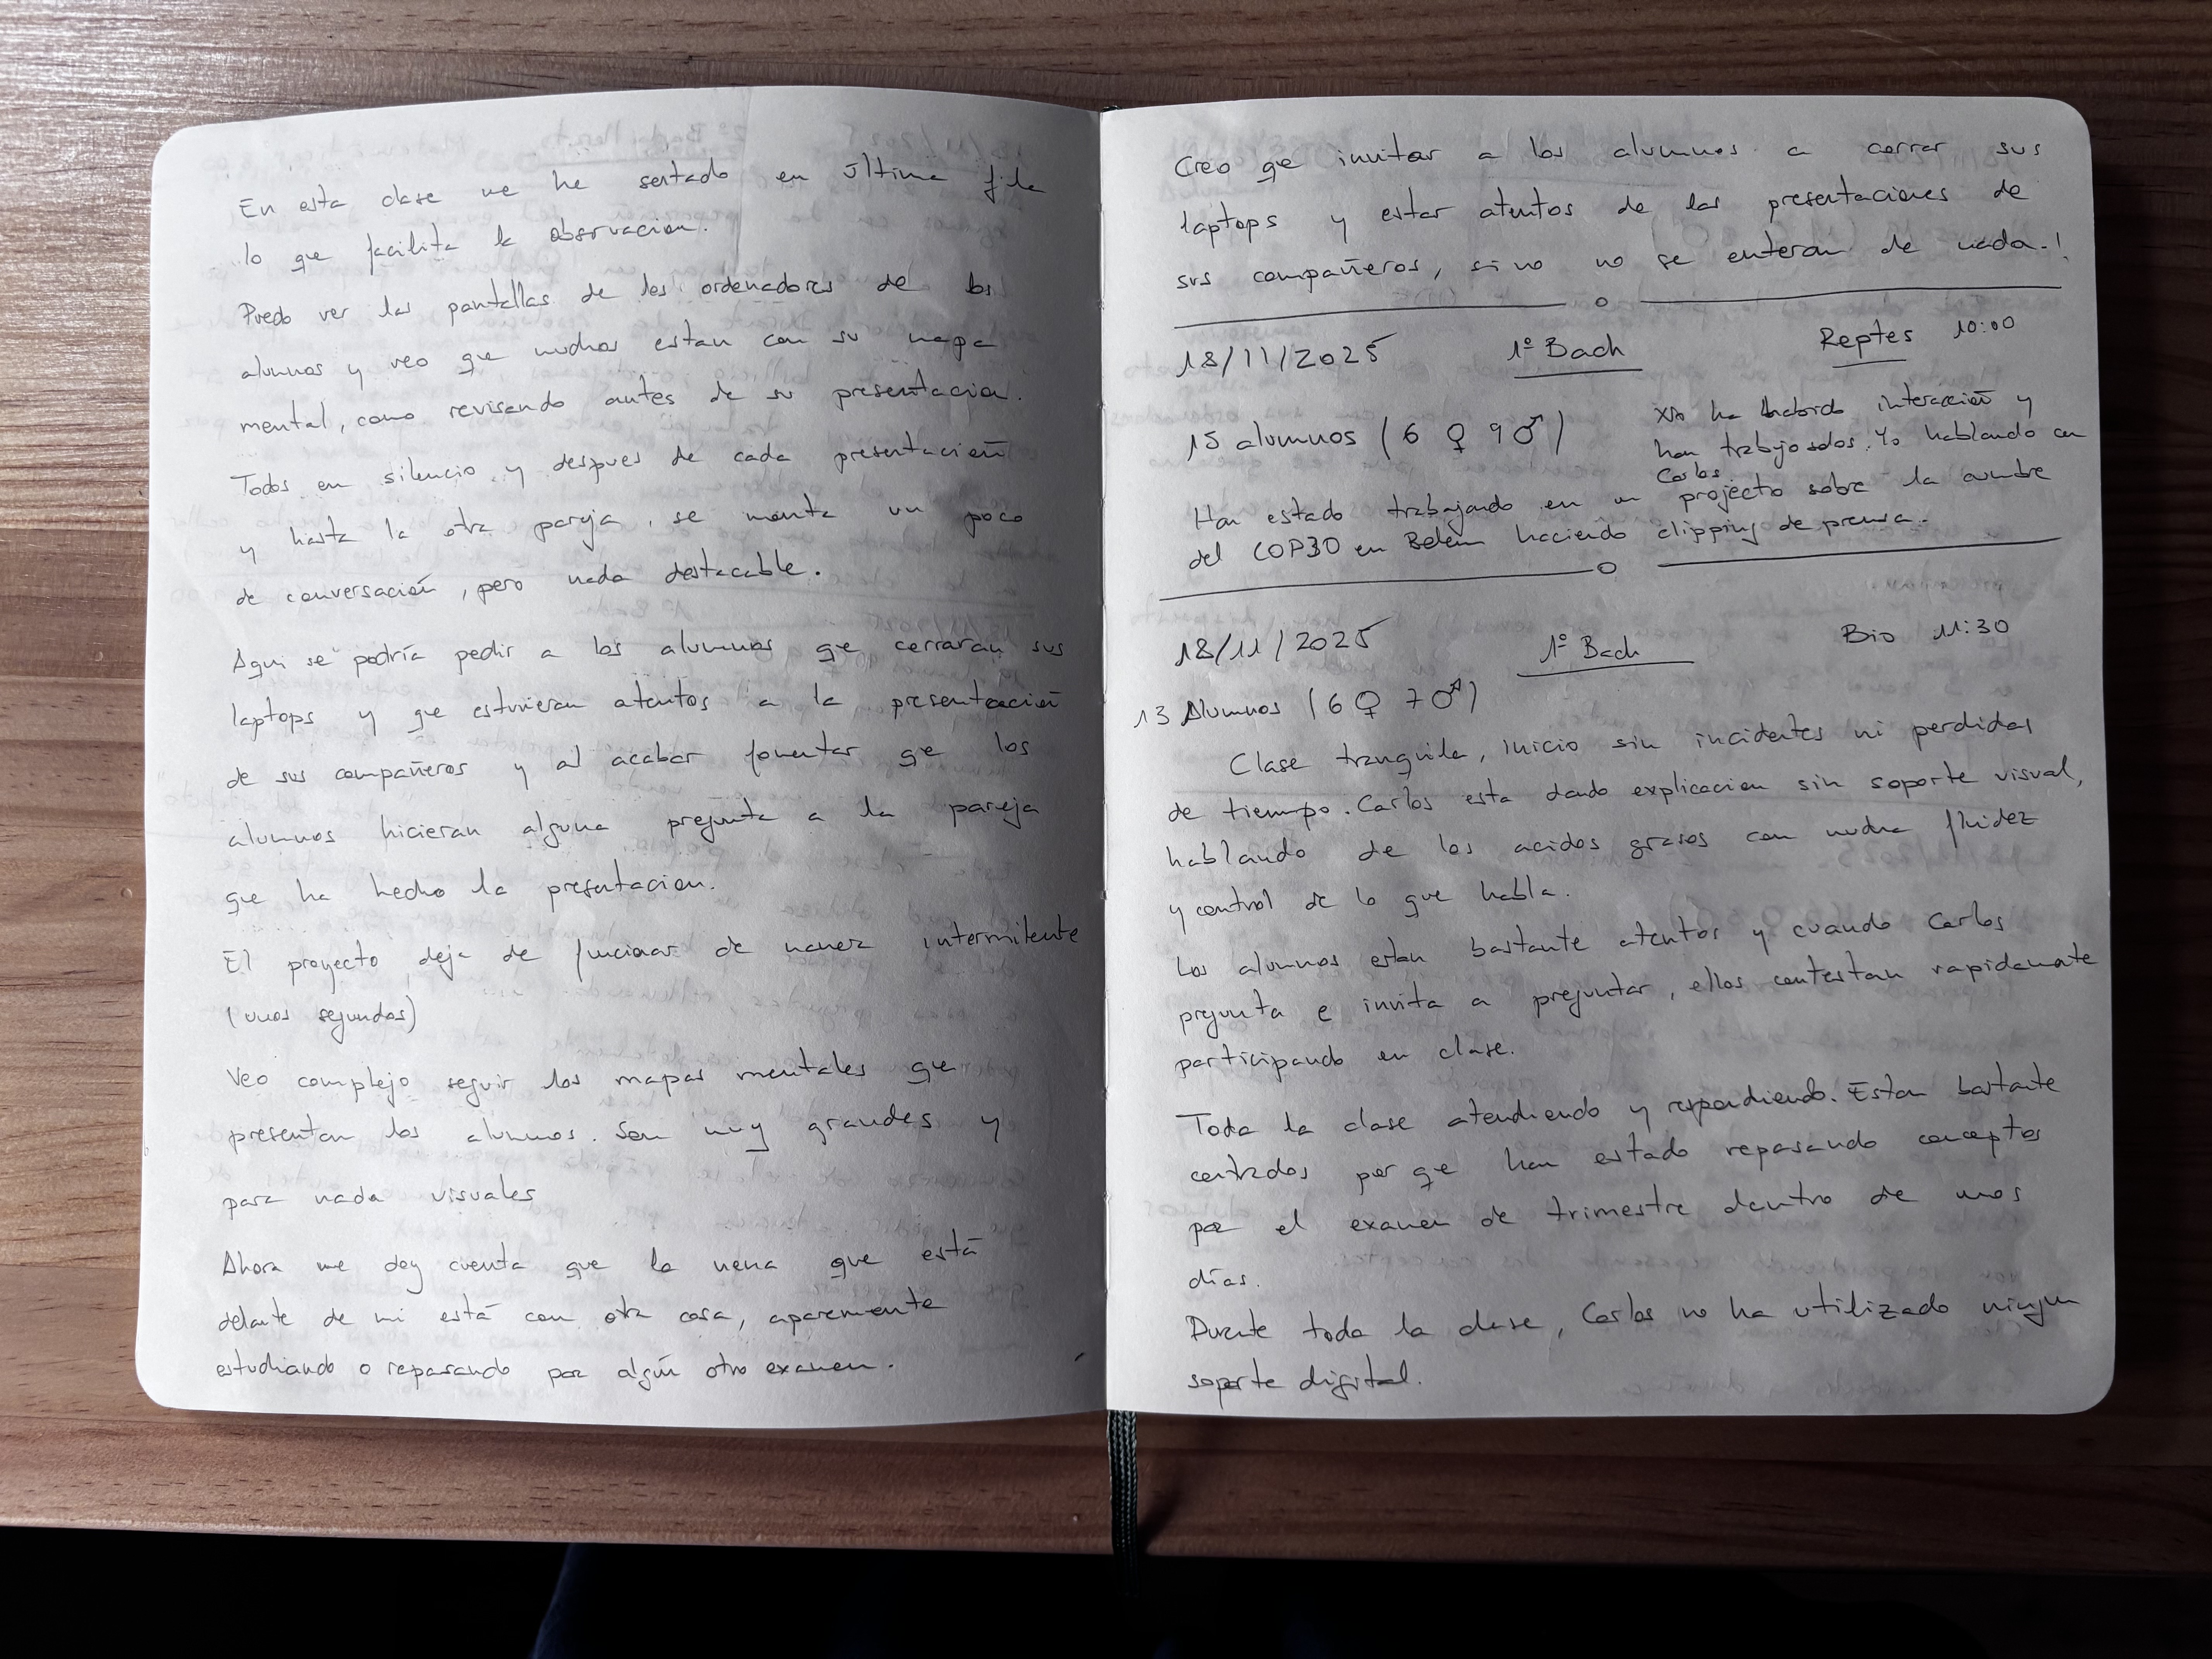 En esta clase me he sentado en última fila
lo que facilita la observacion.
Puedo ver las pantallas de los ordenadores de los
alumnos y veo que muchos estan con su mapa
mental, como revisando antes de su presentacion.
Todos en silencio y despues de cada presentación
y hasta la otra pareja, se monta un poco
de conversación, pero nada destacable.
Aqui se podría pedir a los alumnos que cerraran sus
laptops y que estuvieran atentos a la presentación
de sus compañeros y al acabar fomentar que los
alumnos hicieran alguna pregunta a la pareja
que ha hecho la presentacion.
El proyecto deja de funcionar de manera intermitente
(unos segundos)
Veo complejo seguir los mapas mentales que
presentan los alumnos. Son muy grandes y
para nada visuales
Ahora me doy cuenta que la nena que está
delante de mi está con otra cosa, aparemente
estudiando o repasando por algún otro examen.
Creo que invitar a los alumnos a cerrar sus
laptops y estar atentos de las presentaciones de
sus compañeros, sino no se enteran de nada.!
18/11/2025 1º Bach Reptes 10:00
15 alumnos (6 ♀ 9 ♂)
No ha habido interacción y
han trabajo solos. Yo hablando con
Carlos
Han estado trabajando en un projecto sobre la cumbre
del COP30 en Belem haciendo clipping de prensa.
18/11/2025 1º Bach Bio 11:30
13 Alumnos (6 ♀ 7 ♂)
Clase tranquila, inicio sin incidentes ni perdidas
de tiempo. Carlos esta dando explicacion sin soporte visual,
hablando de los acidos grasos con mucha fluidez
y control de lo que habla.
Los alumnos estan bastante atentos y cuando Carlos
pregunta e invita a preguntar, ellos contestan rapidamente
participando en clase.
Toda la clase atendiendo y respondiendo. Estan bastante
centrados por que han estado repasando conceptos
por el examen de trimestre dentro de unos
días.
Durante toda la clase, Carlos no ha utilizado ningun
soporte digital.